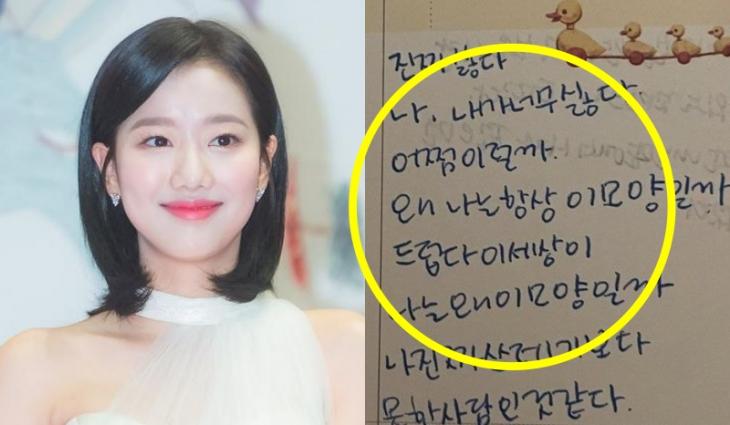 진짜 싫다
나, 내가 너무 싫다
어쩜 이럴까.
왜 나는 항상 이모양일까
드럽다 이세상이
나는 왜 이모양일까
나 진짜 쓰레기보다
못한 사람인것같다.